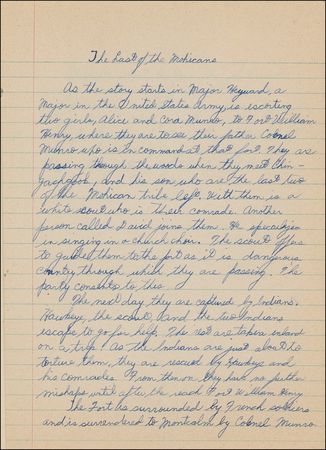 The Last of the Mohicans
As the story starts in Major Heyward, a
Major in the United States Army, is escorting
two girls, Alice and Cora Munro, to Fort William
Henry, where they are to see their father Colonel
Munro who is in command at that fort. They are
passing through the woods when they meet Chin-
gachgook, and his son, who are the last two
of the Mohican tribe left. With them is a
white scout who is their comrade. Another
person called David joins them. He specializes
in singing in a church choir. The scout offers
to guide them to the fort as it is dangerous
country through which they are passing. The
party consents to this.
The next day they are captured by Indians.
Hawkeye, the scout, and the two Indians
escape to go for help. The rest are taken inland
on a trip. As the Indians are just about to
torture them, they are rescued by Hawkeye and
his comrades. From then on they have no further
mishaps until after the reach Fort William Henry
The Fort is surrounded by French soldiers
and is surrendered to Montcalm by Colonel Munro